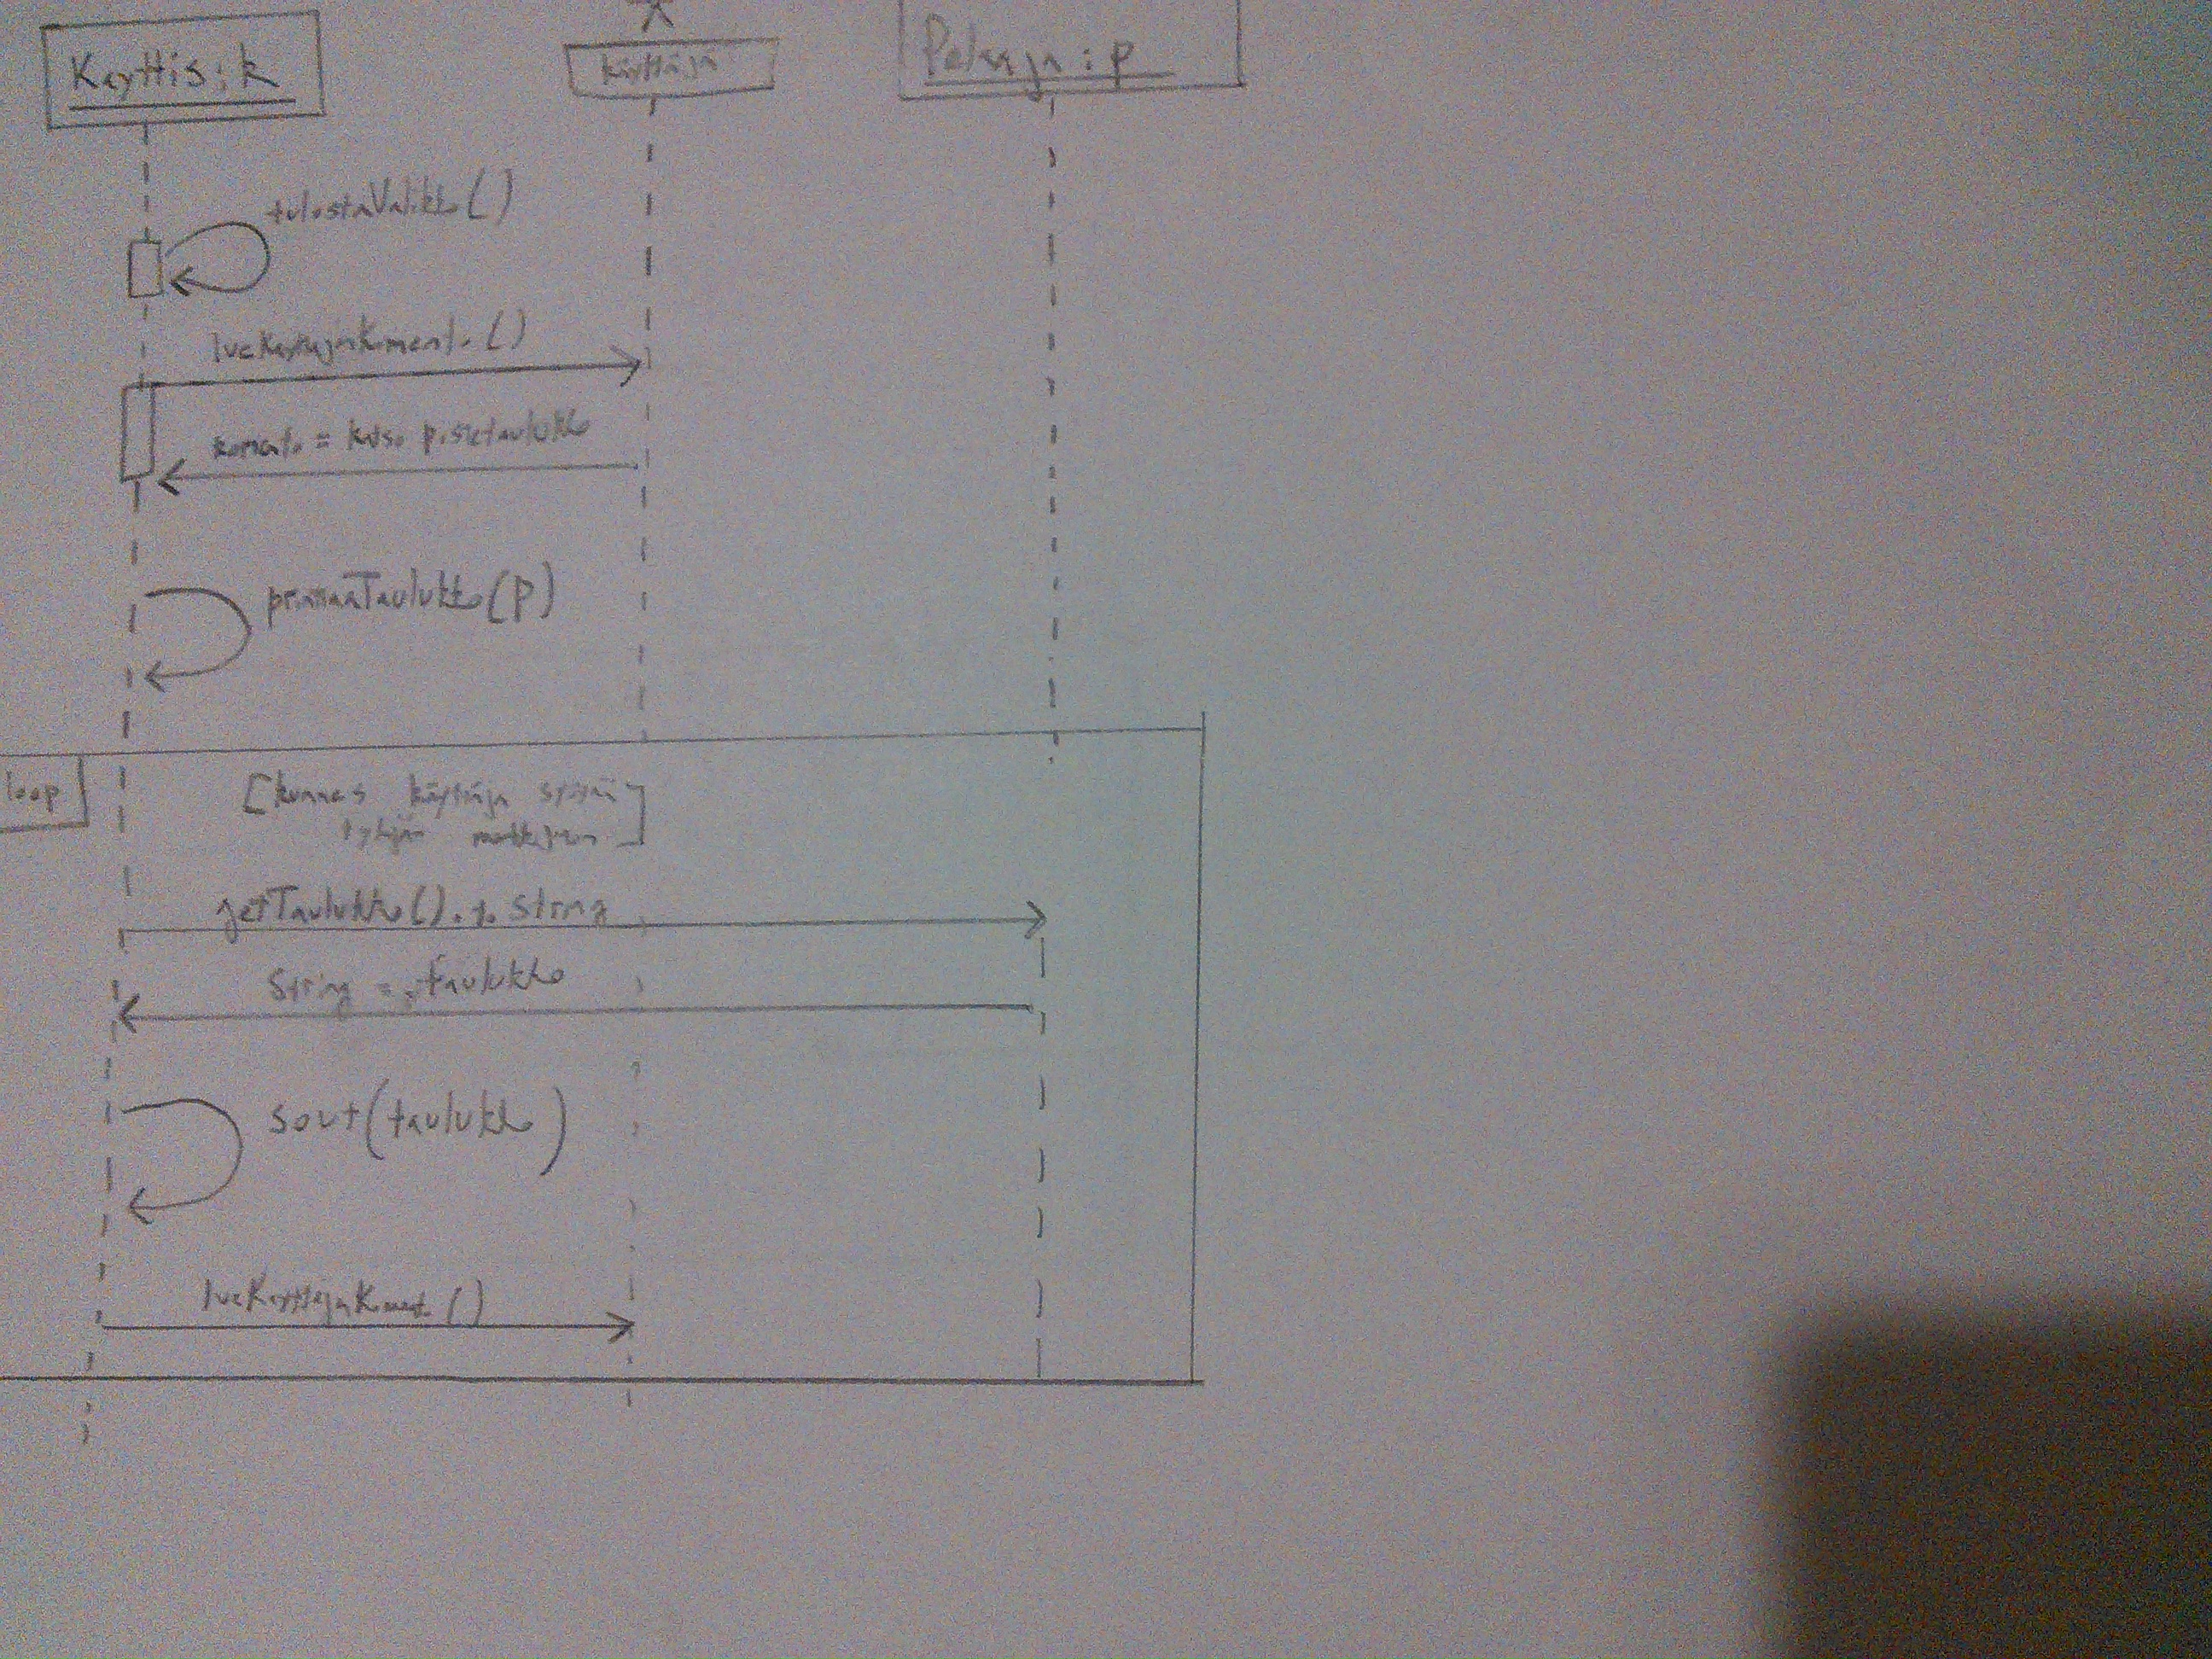 Kayttis : k
käyttäjä
Pelaaja : p
tulostaValikko()
lueKayttajanKomento()
komento = katso pistetaulukko
printtaaTaulukko(p)
loop
[kunnes käyttäjä syöttää
tyhjän merkkijonon]
getTaulukko().toString
String = taulukko
sout(taulukko)
lueKayttajanKomento()